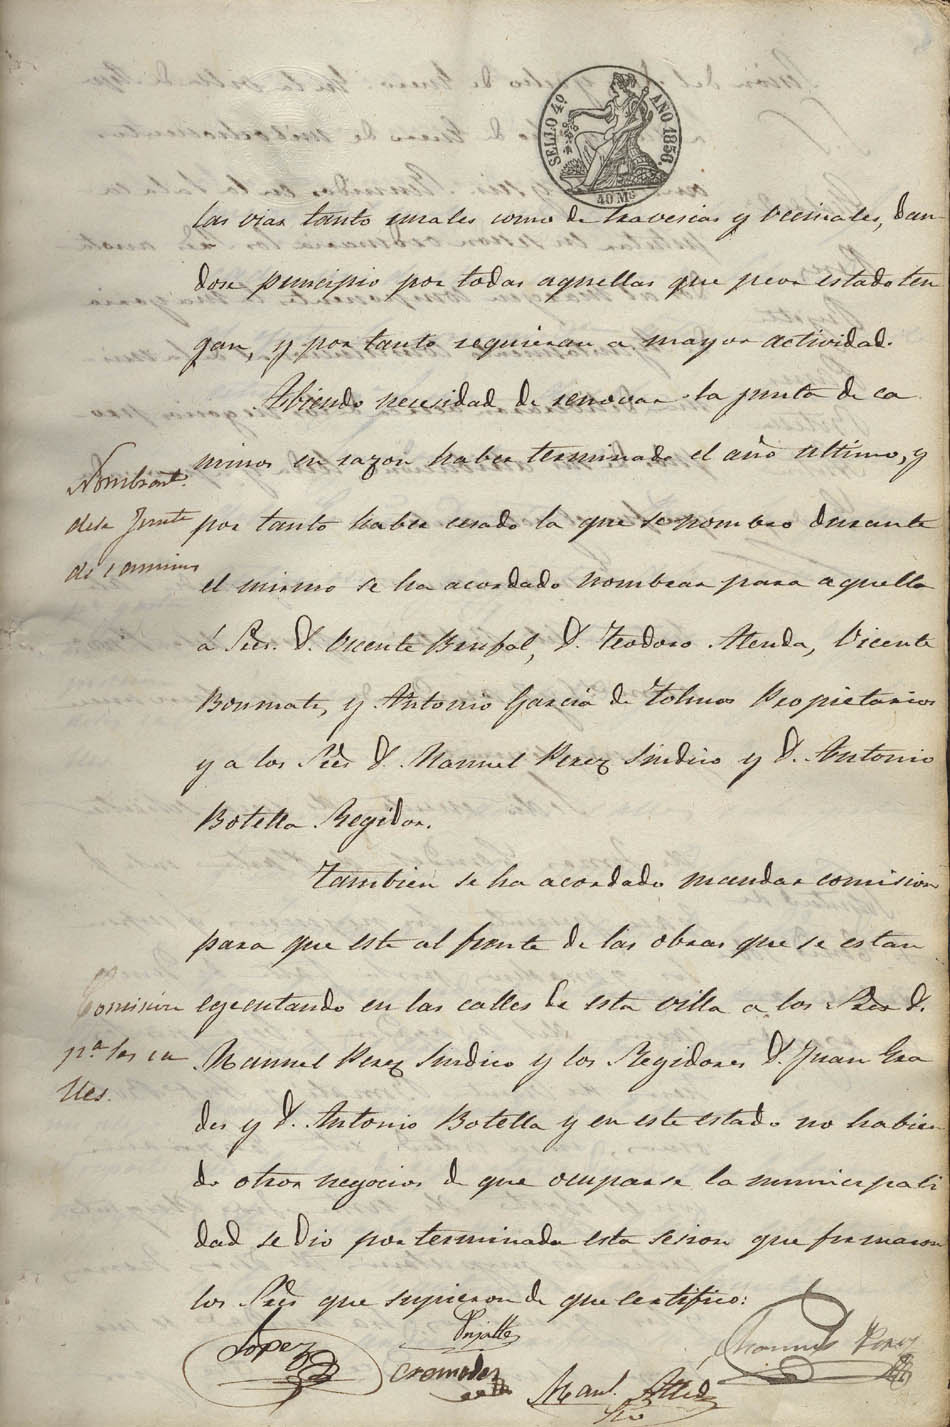 SELLO 4º AÑO 1856.
40 Ms
las vias tanto rurales como de travesias y vecinales, dan
dose principio por todas aquellas que peor estado ten
gan, y por tanto requieran a mayor actividad.
Nombramt.
de la Junta
de caminos
Habiendo necesidad de renovar la junta de ca
minos en razon haber terminado el año ultimo, y
por tanto haber cesado la que se nombro durante
el mismo se ha acordado nombrar para aquella
á Sres. D. Vicente D. Teodoro Alenda, Vicente
Bonmati, y Antonio Garciá de Tolmos Propietarios
y a los Sres D. Manuel Perez Sindico y D. Antonio
Botella Regidor.
Tambien se ha acordado mandar comision
para que este al frente de las obras que se estan
Comisión
pa. las ca
lles.
ejecutando en las calles de esta villa a los Sres D.
Manuel Perez Sindico y los Regidores D. Juan Cra
des y D. Antonio Botella y en este estado no habien
do otros negocios de que ocuparse la municipali
dad se dio por terminada esta sesion que firmaron
los Sres que supieron de que certifico:
Lopez
Cremades
Manl.
Srio
Manuel Perez